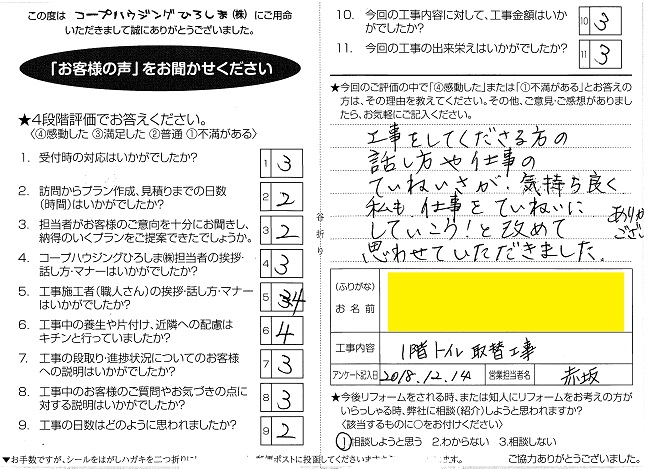 この度は コープハウジングひろしま(株) にご用命
いただきまして誠にありがとうございました。
「お客様の声」をお聞かせください
★4段階評価でお答えください。
〈④感動した ③満足した ②普通 ①不満がある〉
1. 受付時の対応はいかがでしたか?
1 3
2. 訪問からプラン作成、見積りまでの日数
(時間)はいかがでしたか?
2 2
3. 担当者がお客様のご意向を十分にお聞きし、
納得のいくプランをご提案できたでしょうか。
3 2
4. コープハウジングひろしま㈱担当者の挨拶・
話し方・マナーはいかがでしたか?
4 3
5. 工事施工者(職人さん)の挨拶・話し方・マナー
はいかがでしたか?
5 4
6. 工事中の養生や片付け、近隣への配慮は
キチンと行っていましたか?
6 4
7. 工事の段取り・進捗状況についてのお客様
への説明はいかがでしたか?
7 3
8. 工事中のお客様のご質問やお気づきの点に
対する説明はいかがでしたか?
8 3
9. 工事の日数はどのように思われましたか?
9 2
▼お手数ですが、シールをはがしハガキを二つ折りに
谷折り
10. 今回の工事内容に対して、工事金額はいか
がでしたか?
10 3
11. 今回の工事の出来栄えはいかがでしたか?
11 3
★今回のご評価の中で「④感動した」または「①不満がある」とお答えの
方は、その理由を教えてください。その他、ご意見・ご感想がありまし
たら、お気軽にご記入ください。
工事をしてくださる方の
話し方や仕事の
ていねいさが、気持ち良く
私も、仕事をていねいに
していこう!と改めて
思わせていただきました。
ありがとう
ござい
(ふりがな)
お名前
工事内容
1階トイレ取替工事
アンケート記入日
2018.12.14
営業担当者名
赤坂
★今後リフォームをされる時、または知人にリフォームをお考えの方が
いらっしゃる時、弊社に相談(紹介)しようと思われますか?
〈該当するものに○をお付けください〉
1.相談しようと思う 2.わからない 3.相談しない
ポストに投函してくださいます
ご協力ありがとうございました。